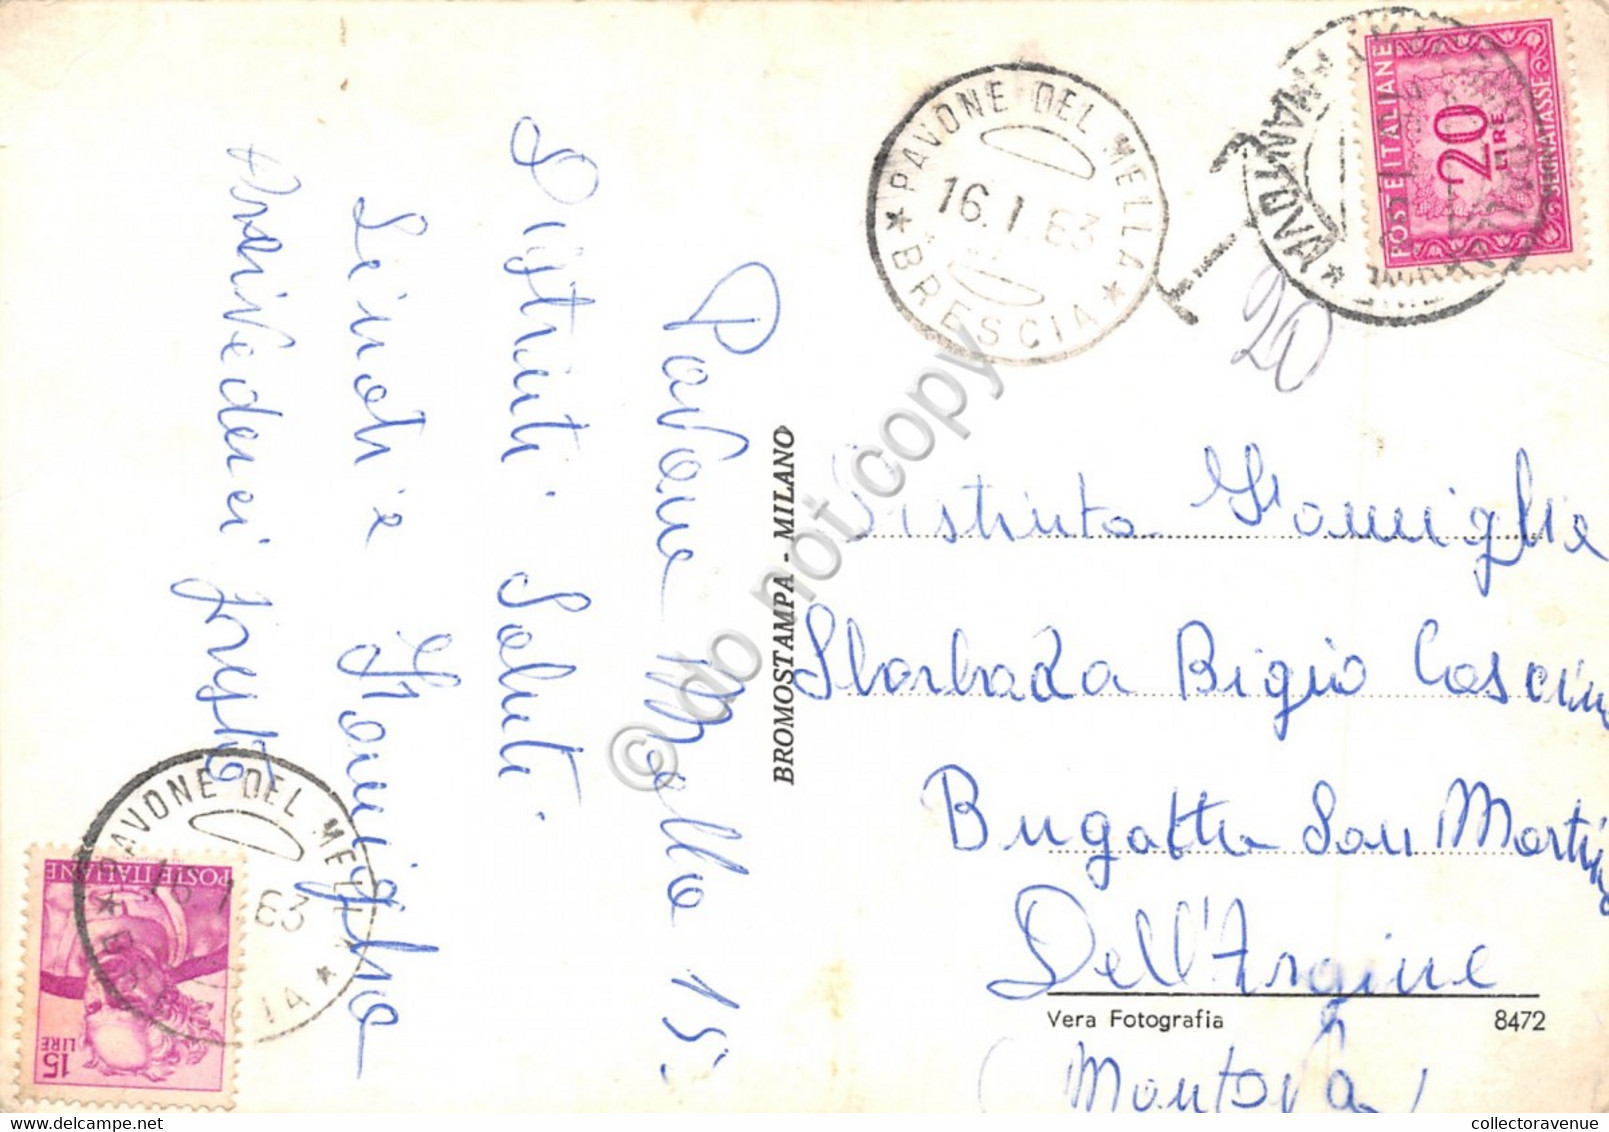 Pavone Mella 15.
Distinti Saluti.
e Famiglia
Arrivederci presto
PAVONE DEL MELLA
16.1.63
★ BRESCIA ★
POSTE ITALIANE
20
LIRE
SEGNATASSE
T
20
BROMOSTAMPA - MILANO
Distinta Famiglia
Sbarbada Bigio Cascina
Bugatta San Martino
Dell'Argine
Vera Fotografia 8472
(Mantova)
PAVONE DEL MELLA
16.1.63
★ BRESCIA ★
POSTE ITALIANE
15
LIRE
© do not copy
collectoravenue@delcampe.net